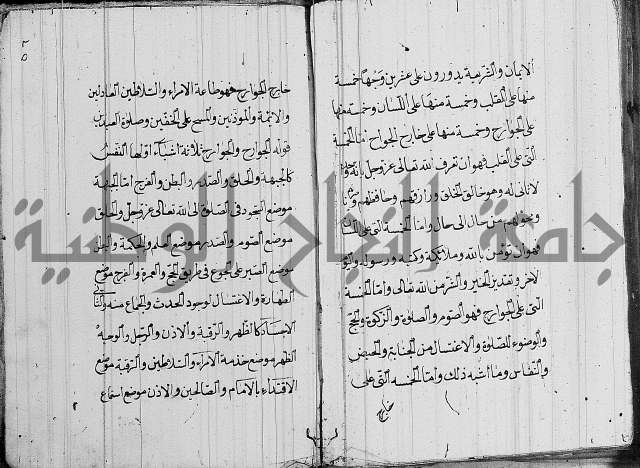 الايمان والشريعة يدورون على عشرين وجها خمسة
منها على القلب وخمسة منها على اللسان وخمسة منها
على الجوارح وخمسة منها على خارج الجوارح اما الخمسة
التي على القلب فهو ان تعرف الله تعالى عز وجل بانه واحد
لا ثاني له وهو خالق الخلق ورازقهم وحافظهم
ومحولهم من حال الى حال واما الخمسة التي على اللسان
فهو ان تؤمن بالله وملائكته وكتبه ورسوله واليوم
الاخر وتقدير الخير والشر من الله تعالى واما الخمسة
التي على الجوارح فهو الصوم والصلوة والزكوة والحج
والوضوء للصلوة والاغتسال من الجنابة والحيض
والنفاس وما اشبه ذلك واما الخمسة التي على
خارج
خارج الجوارح فهو طاعة الامراء والسلاطين العادلين
والائمة والموذنين والمسح على الخفين وصلوة العيدين
قوله الجوارح والجوارح ثلاثة اشياء اولها النفس
كالجبهة والحلق والصدر والبطن والفرج اما الجبهة
موضع السجود في الصلوة لله تعالى عز وجل والحلق
موضع الصوم والصدر موضع العلم والحكمة والبطن
موضع الصبر على الجوع في طريق الحج والعمرة والفرج موضع
الطهارة والاغتسال لوجود الحدث والجماع منه والثاني
الاجساد كالظهر والرقبة والاذن والرجل والوجه
الظهر موضع خدمة الامراء والسلاطين والرقبة موضع
الاقتداء بالامام والصالحين والاذن موضع استماع
جامعة النجاح الوطنية